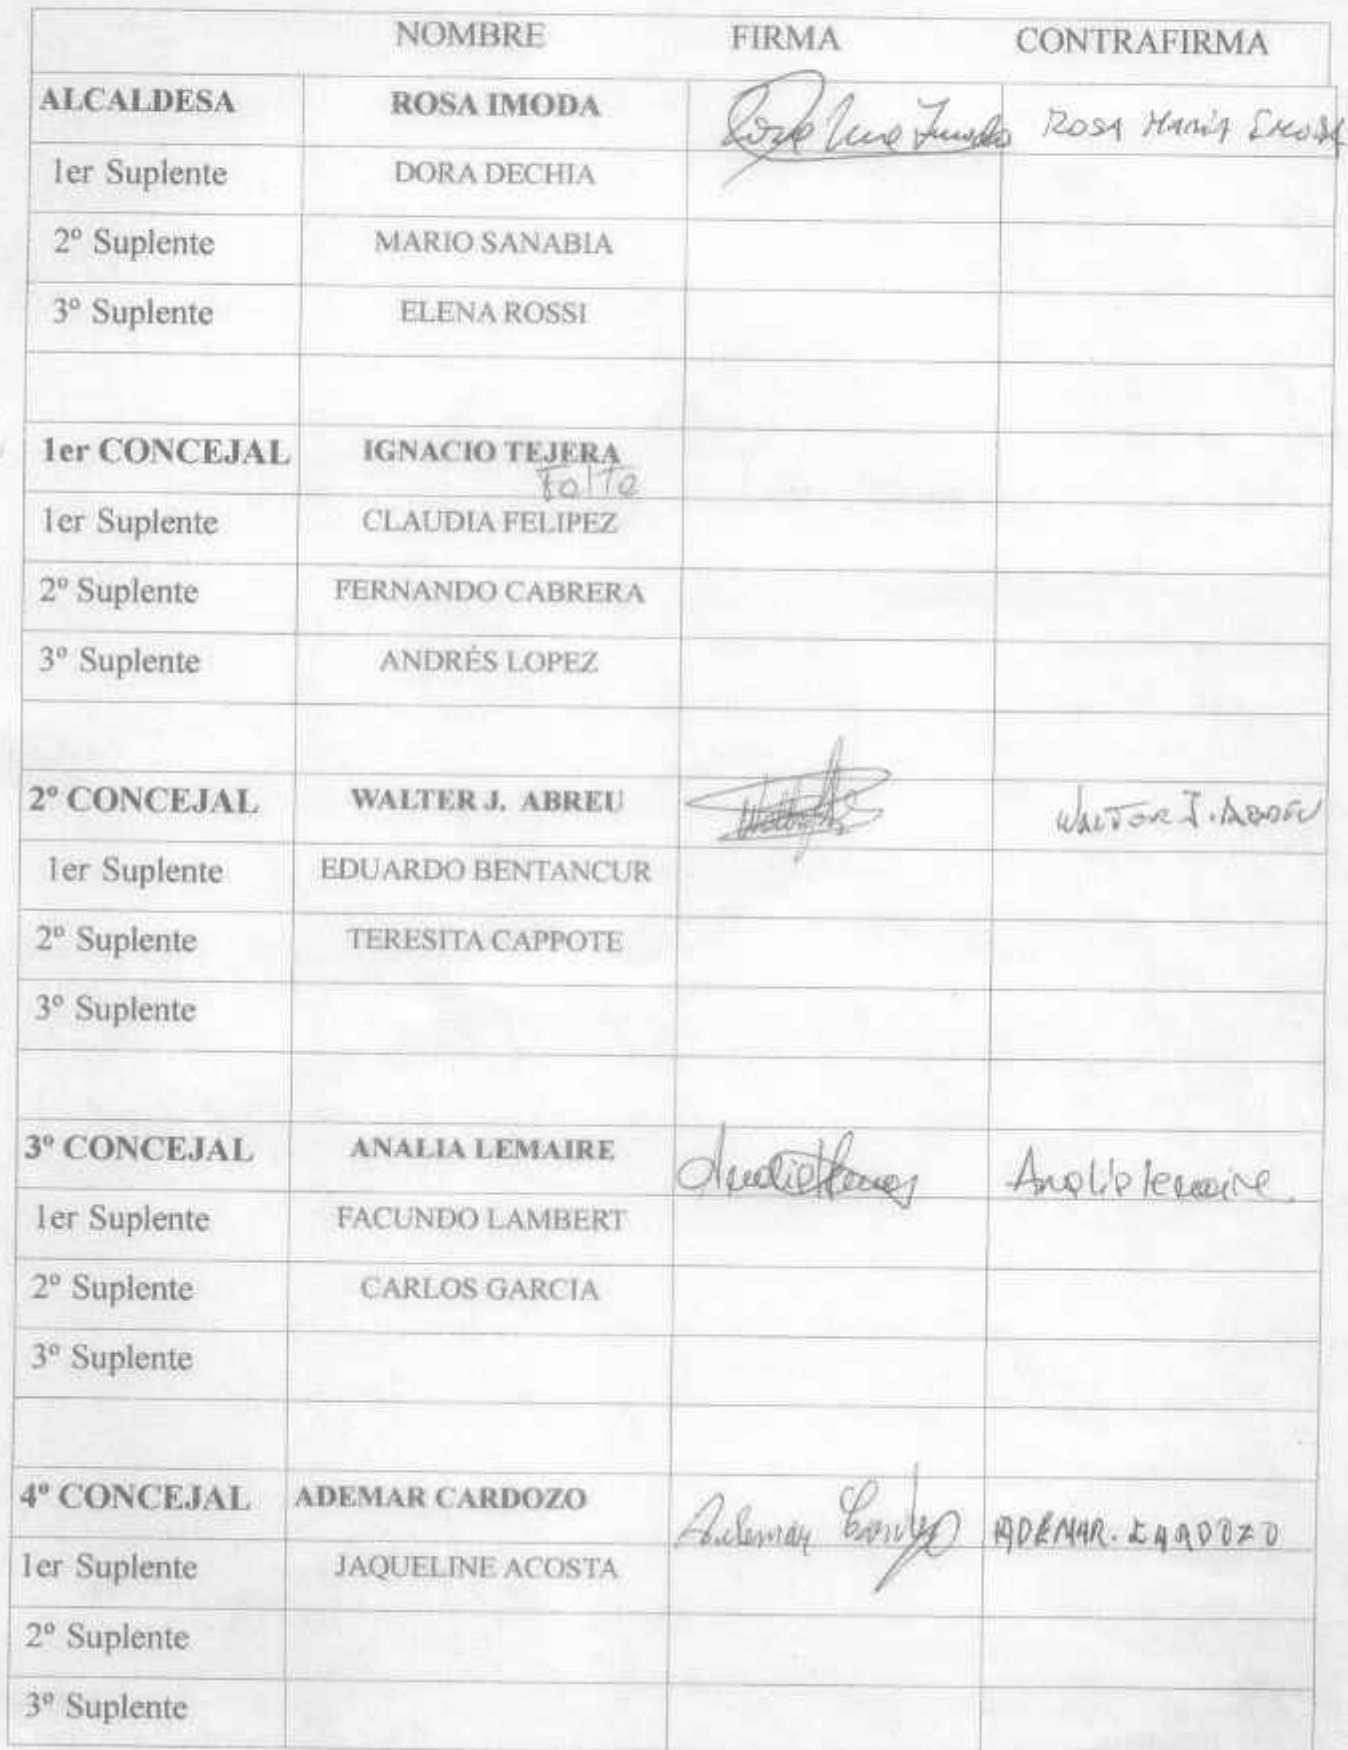 NOMBRE FIRMA CONTRAFIRMA
ALCALDESA ROSA IMODA Rosa Imoda ROSA María IMODA
1er Suplente DORA DECHIA
2º Suplente MARIO SANABIA
3º Suplente ELENA ROSSI
1er CONCEJAL IGNACIO TEJERA
Falta
1er Suplente CLAUDIA FELIPEZ
2º Suplente FERNANDO CABRERA
3º Suplente ANDRÉS LOPEZ
2º CONCEJAL WALTER J. ABREU WALTER J. ABREU
1er Suplente EDUARDO BENTANCUR
2º Suplente TERESITA CAPPOTE
3º Suplente
3º CONCEJAL ANALIA LEMAIRE Analia Lemaire
1er Suplente FACUNDO LAMBERT
2º Suplente CARLOS GARCIA
3º Suplente
4º CONCEJAL ADEMAR CARDOZO Ademar Cardozo ADEMAR. CARDOZO
1er Suplente JAQUELINE ACOSTA
2º Suplente
3º Suplente